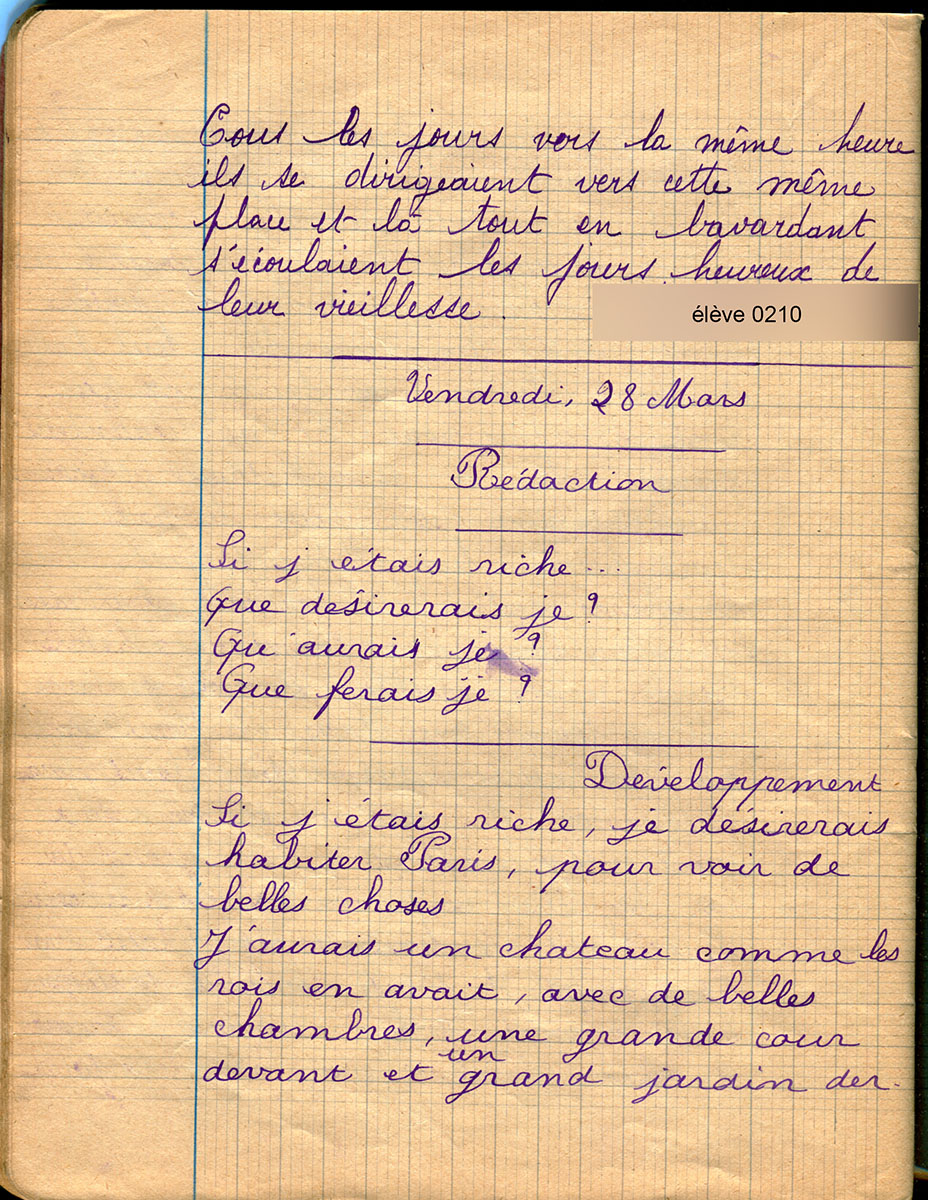 Tous les jours vers la même heure
ils se dirigeaient vers cette même
place et là tout en bavardant
s'écoulaient les jours heureux de
leur vieillesse.
élève 0210
Vendredi, 28 Mars
Rédaction
Si j étais riche...
Que désirerais je ?
Qu'aurais je ?
Que ferais je ?
Développement
Si j'étais riche, je désirerais
habiter Paris, pour voir de
belles choses
J'aurais un chateau comme les
rois en avait, avec de belles
chambres, une grande cour
un
devant et grand jardin der-